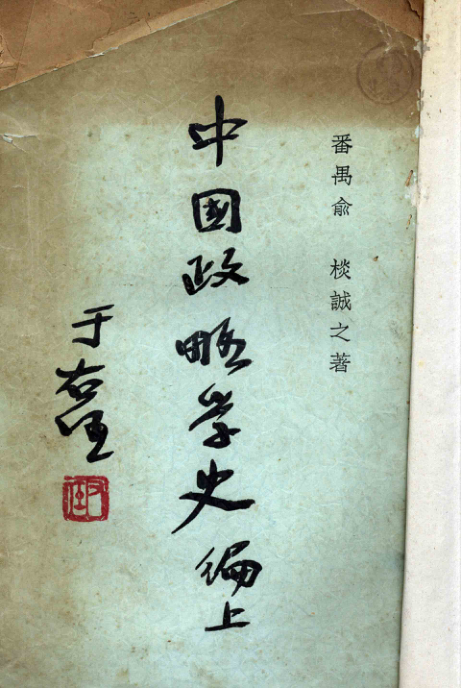 番禺俞棪誠之著
中国政略学史 上編
于右任